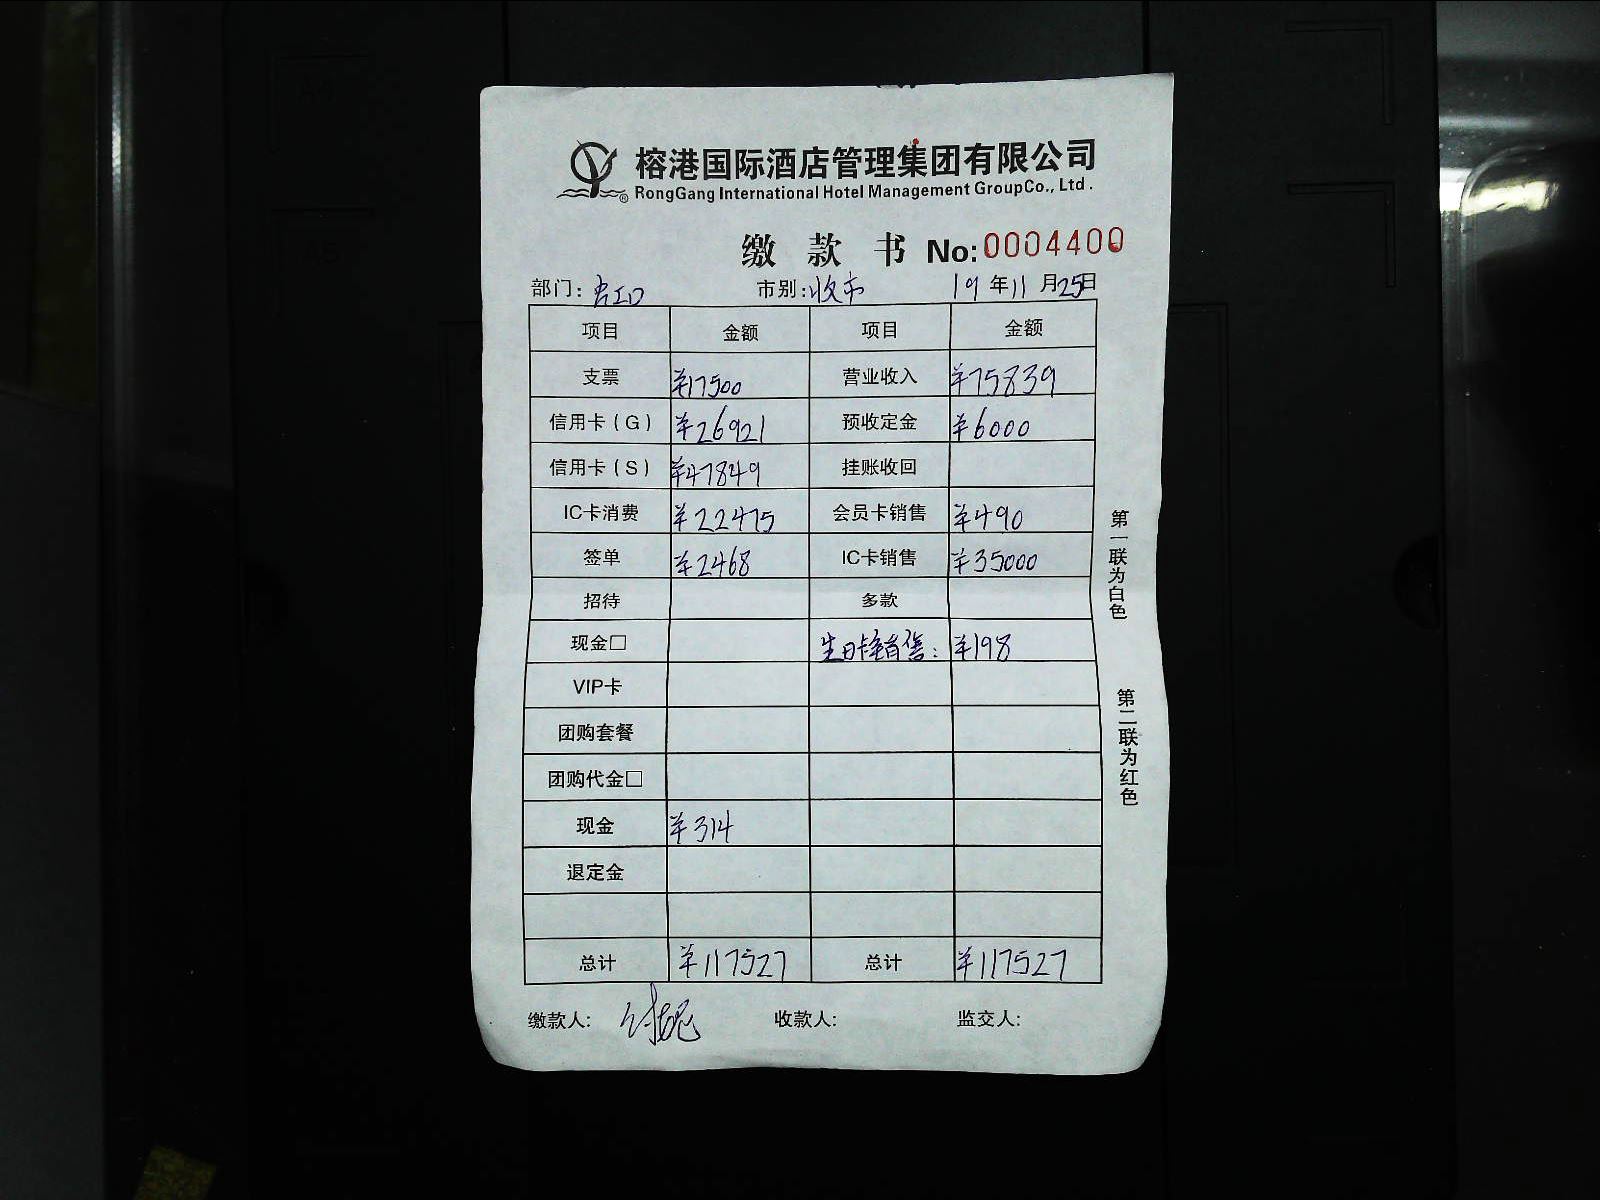 榕港国际酒店管理集团有限公司
RongGang International Hotel Management GroupCo., Ltd.
缴款书 No:0004400
部门: 市别:收市 19年11月25日
项目 金额 项目 金额
支票 ¥17500 营业收入 ¥75839
信用卡(G) ¥26921 预收定金 ¥6000
信用卡(S) ¥47849 挂账收回
IC卡消费 ¥22475 会员卡销售 ¥490
签单 ¥2468 IC卡销售 ¥35000
招待 多款
现金□ 生日卡销售: ¥198
VIP卡
团购套餐
团购代金□
现金 ¥314
退定金
总计 ¥117527 总计 ¥117527
缴款人: 收款人: 监交人:
第一联为白色
第二联为红色